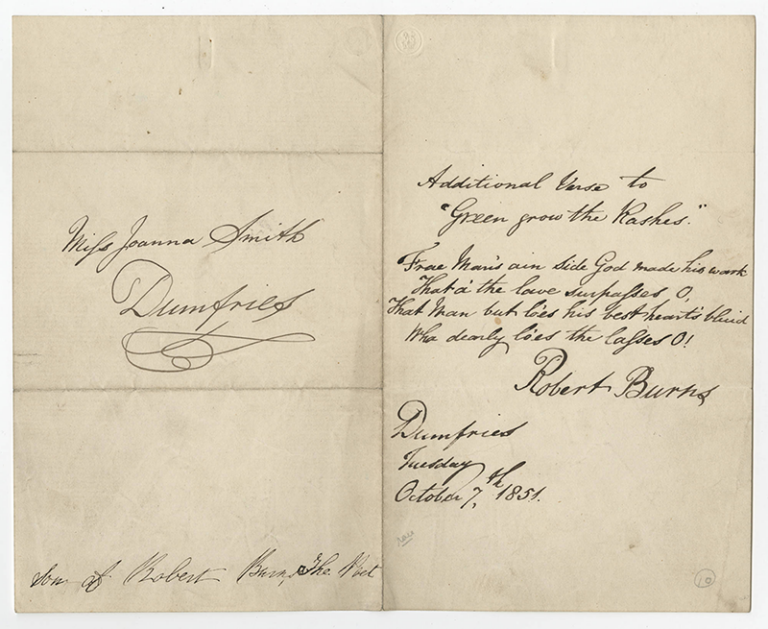 Miss Joanna Smith
Dumfries
Son of Robert Burns The Poet
Additional Verse to
"Green grow the Rashes."
Frae Man's ain side God made his wark
That a' the lave surpasses O,
That Man but lo'es his best heart's bluid
Wha dearly lo'es the lasses O!
Robert Burns
Dumfries
Tuesday
October 7th, 1851.
10